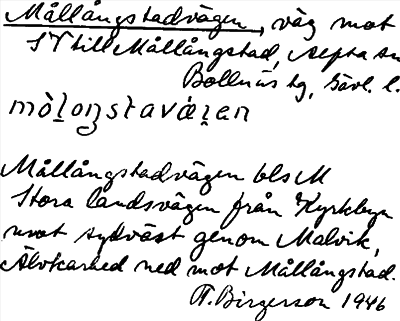 Mållångstadvägen, väg mot
SV till Mållångstad, Alfta sn
Bollnäs tg, Gävl. l.
mòloŋstavä́gen
Mållångstadvägen bls M
Stora landsvägen från Kyrkbyn
mot sydväst genom Malvik,
Älvkarhed ned mot Mållångstad.
T. Birgerson 1946